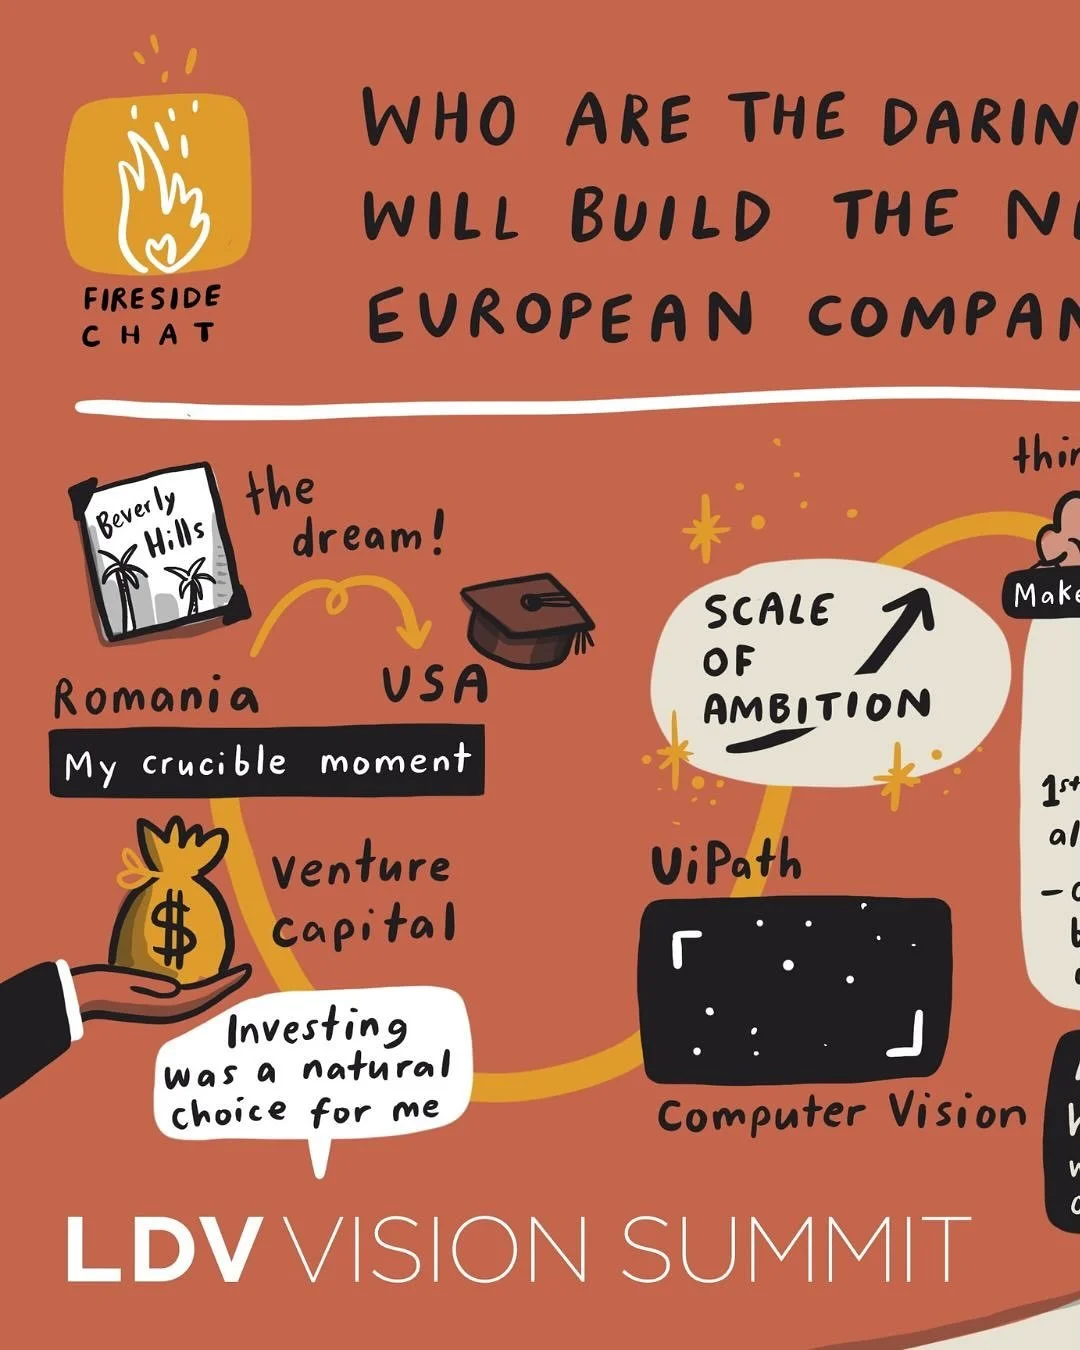 WHO ARE THE DARIN
WILL BUILD THE
EUROPEAN COMPAN
FIRESIDE
CHAT
Beverly
Hills
the
dream!
Romania
USA
My crucible moment
Venture
capital
Investing
was a natural
choice for me
SCALE
OF
AMBITION
UiPath
Computer Vision
thin
Make
1st
al
LDV VISION SUMMIT